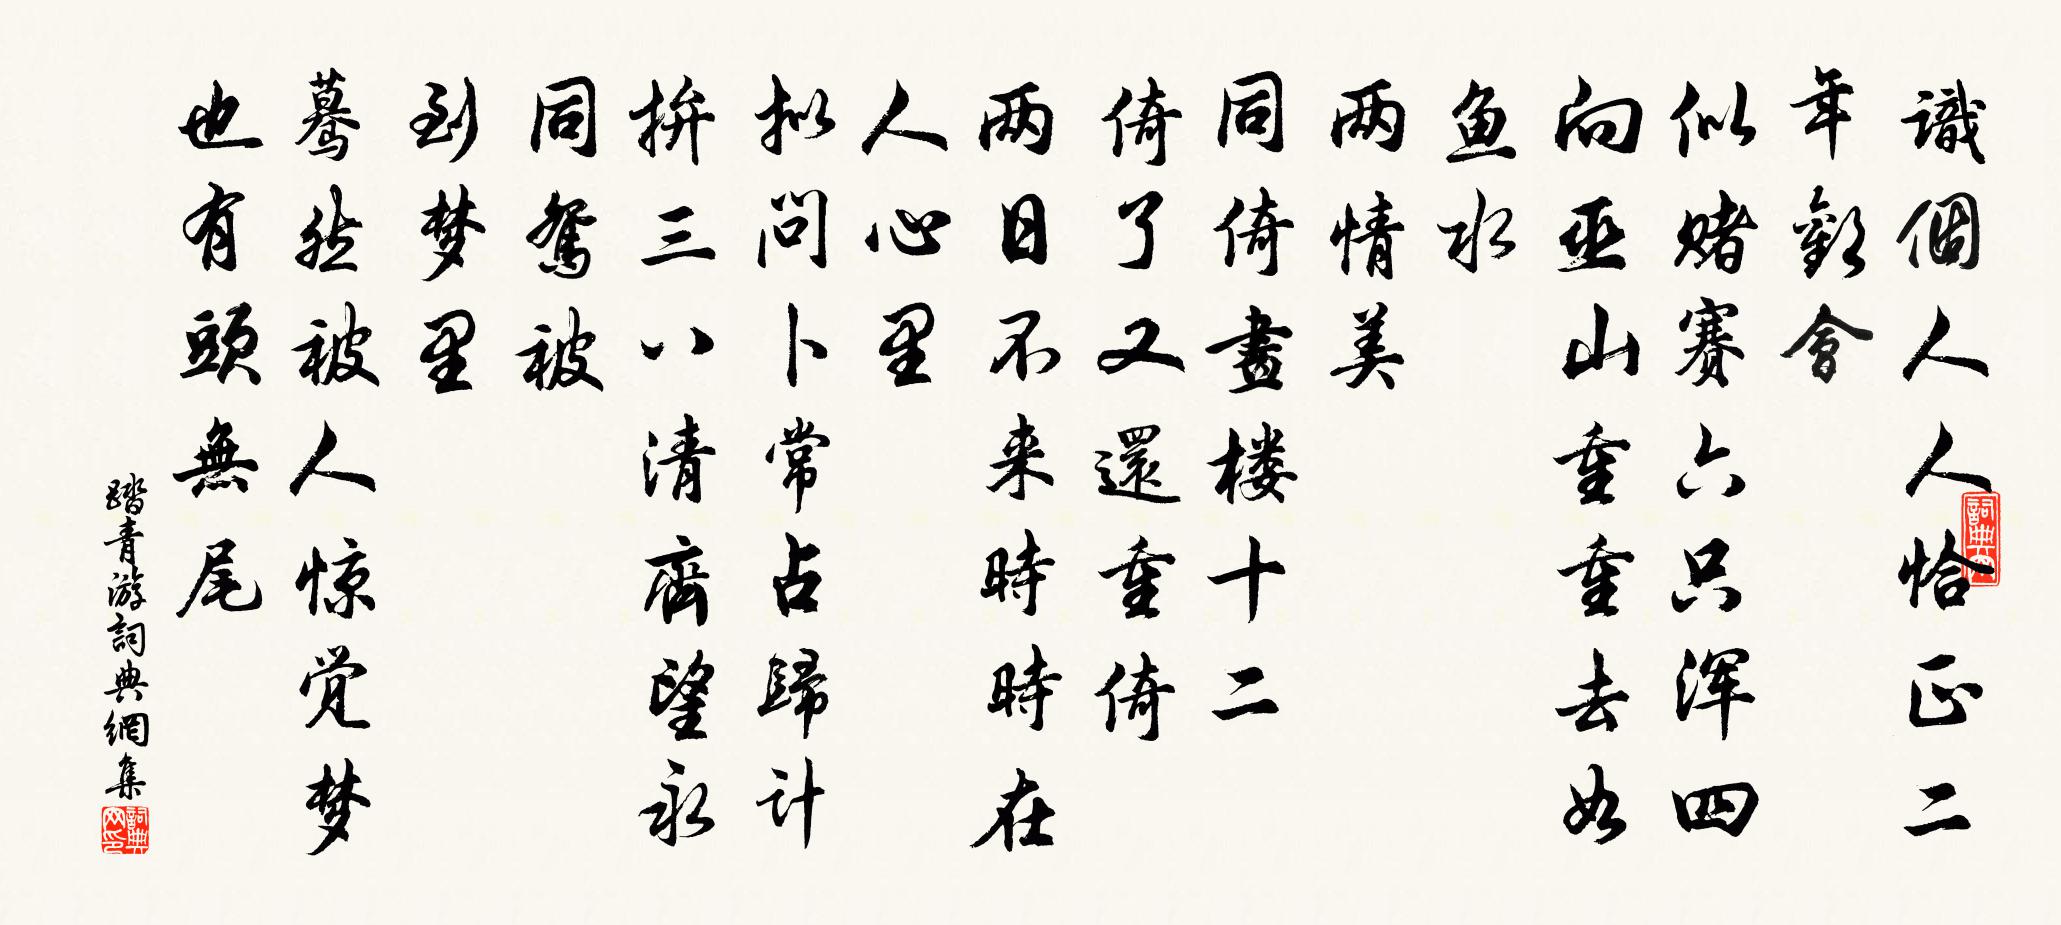 識個人人恰正二
年歡會
似賭賽六只渾四
向巫山重重去如
鱼水
两情美
同倚畫楼十二
倚了又還重倚
两日不来時時在
人心里
拟問卜常占歸计
拚三八清齋望永
同鴛被
到梦里
驀然被人惊觉梦
也有頭無尾
踏青游詞典網集
詞典
詞典网印